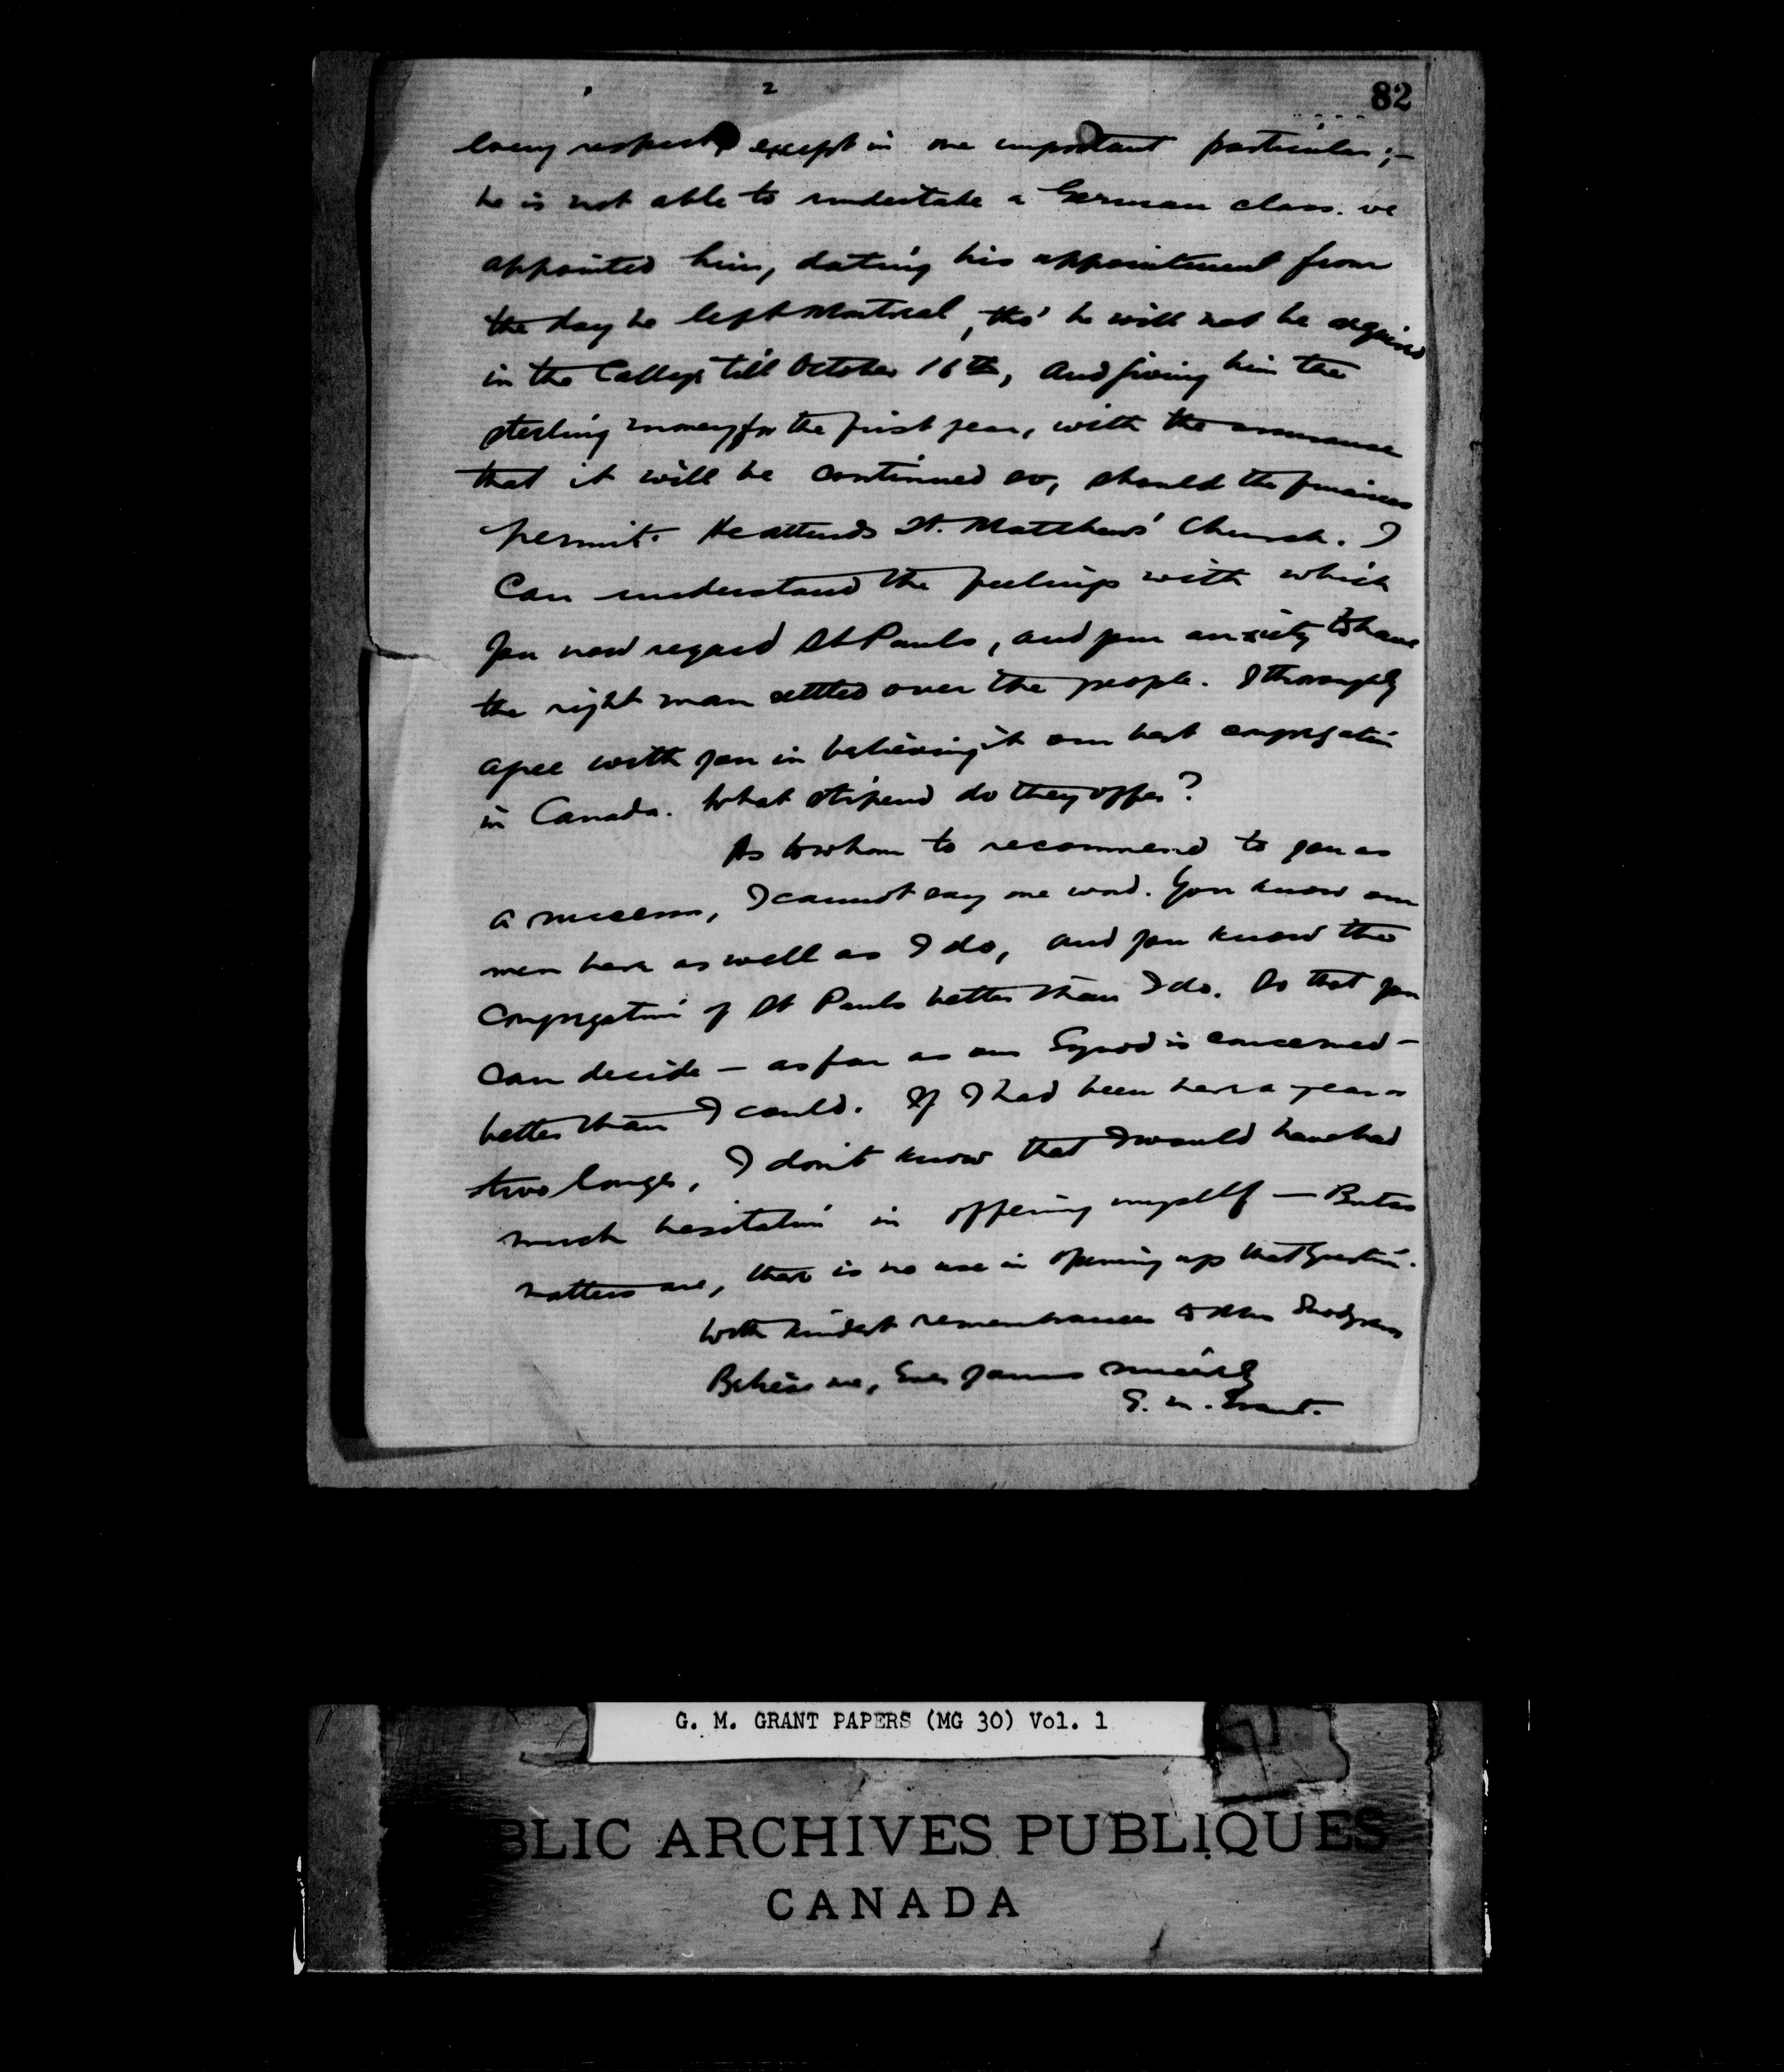 2
82
every respect, except in one important particular;-
he is not able to undertake a German class. we
appointed him, dating his appointment from
the day he left Montreal, tho' he will not be required
in the College till October 16th, and giving him the
sterling money for the first year, with the assurance
that it will be continued so, should the finances
permit. He attends St. Matthews' Church. I
Can understand the feelings with which
you now regard St Pauls, and your anxiety to have
the right man settled over the people. I thoroughly
agree with you in believing it our best congregation
in Canada. What stipend do they offer?
As to whom to recommend to you as
a successor, I cannot say one word. You know our
men here as well as I do, and you know the
Congregation of St Pauls better than I do. So that you
can decide — as far as our Synod is concerned —
better than I could. If I had been here a year or
two longer, I don't know that I would have had
much hesitation in offering myself — But as
matters are, there is no use in opening up that question.
With kindest remembrances to Mrs Snodgrass
Believe me, Ever yours sincerely
G. M. Grant.
G. M. GRANT PAPERS (MG 30) Vol. 1
BLIC ARCHIVES PUBLIQUES
CANADA